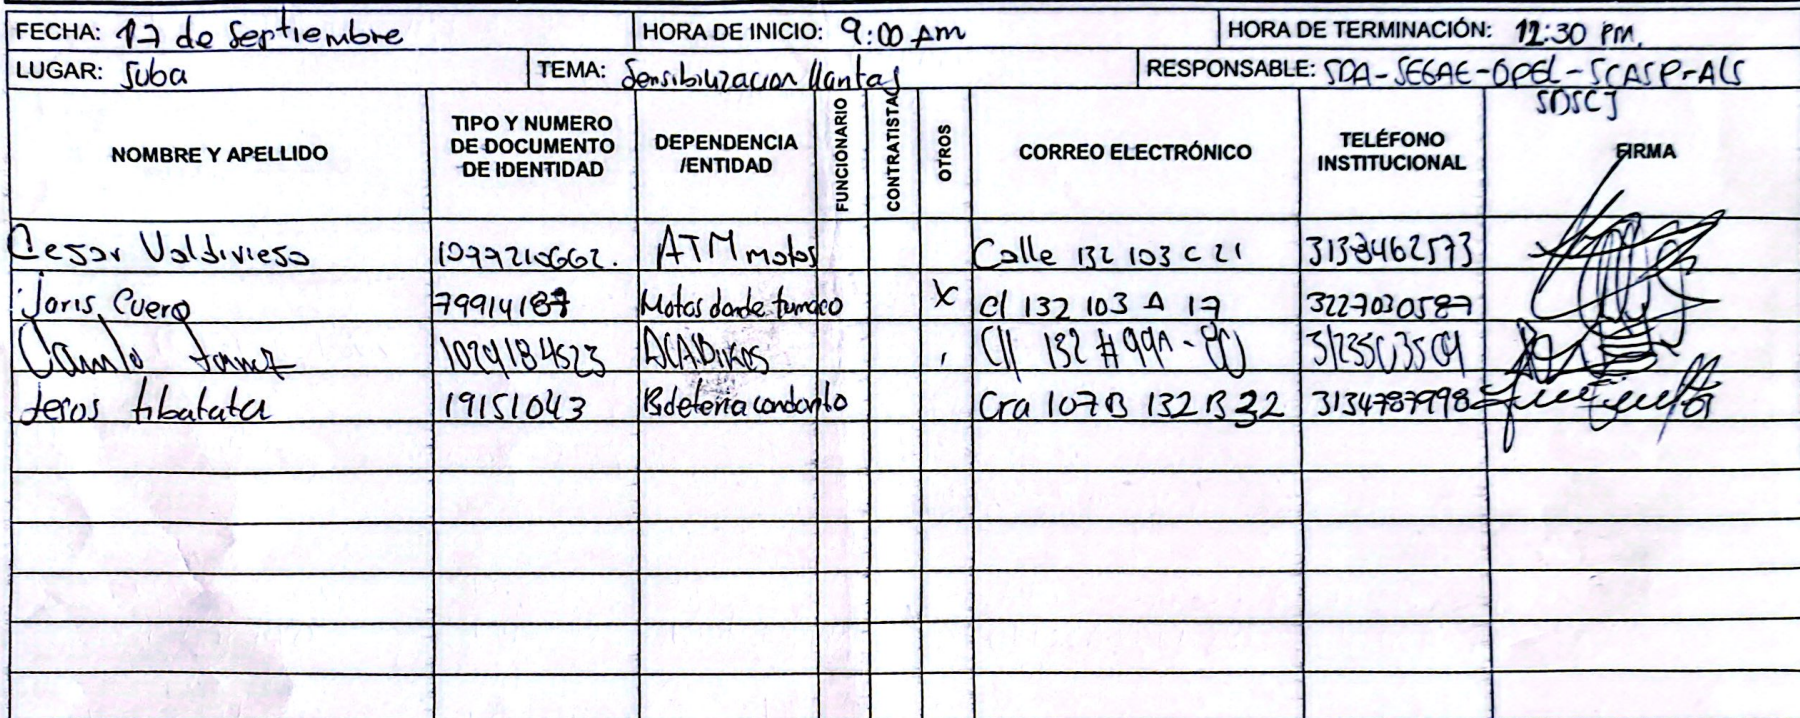 FECHA: 17 de Septiembre HORA DE INICIO: 9:00 Am HORA DE TERMINACIÓN: 12:30 Pm.
LUGAR: Suba TEMA: Sensibilizacion llantas RESPONSABLE: SDA-SEGAE-OPEL-SCASP-ALS
SDSCJ
NOMBRE Y APELLIDO TIPO Y NUMERO DE DOCUMENTO DE IDENTIDAD DEPENDENCIA /ENTIDAD FUNCIONARIO CONTRATISTA OTROS CORREO ELECTRÓNICO TELÉFONO INSTITUCIONAL FIRMA
Cesar Valdivieso 1099210662. ATM motos Calle 132 103 c 21 3138462573
Joris Cuero 79914187 Motos donde tumaco X Cl 132 103 A 17 3227030587
Camilo 1029184523 Cll 132 # 99A -
tibatata 19151043 Cra 107B 132B 32 3134787998